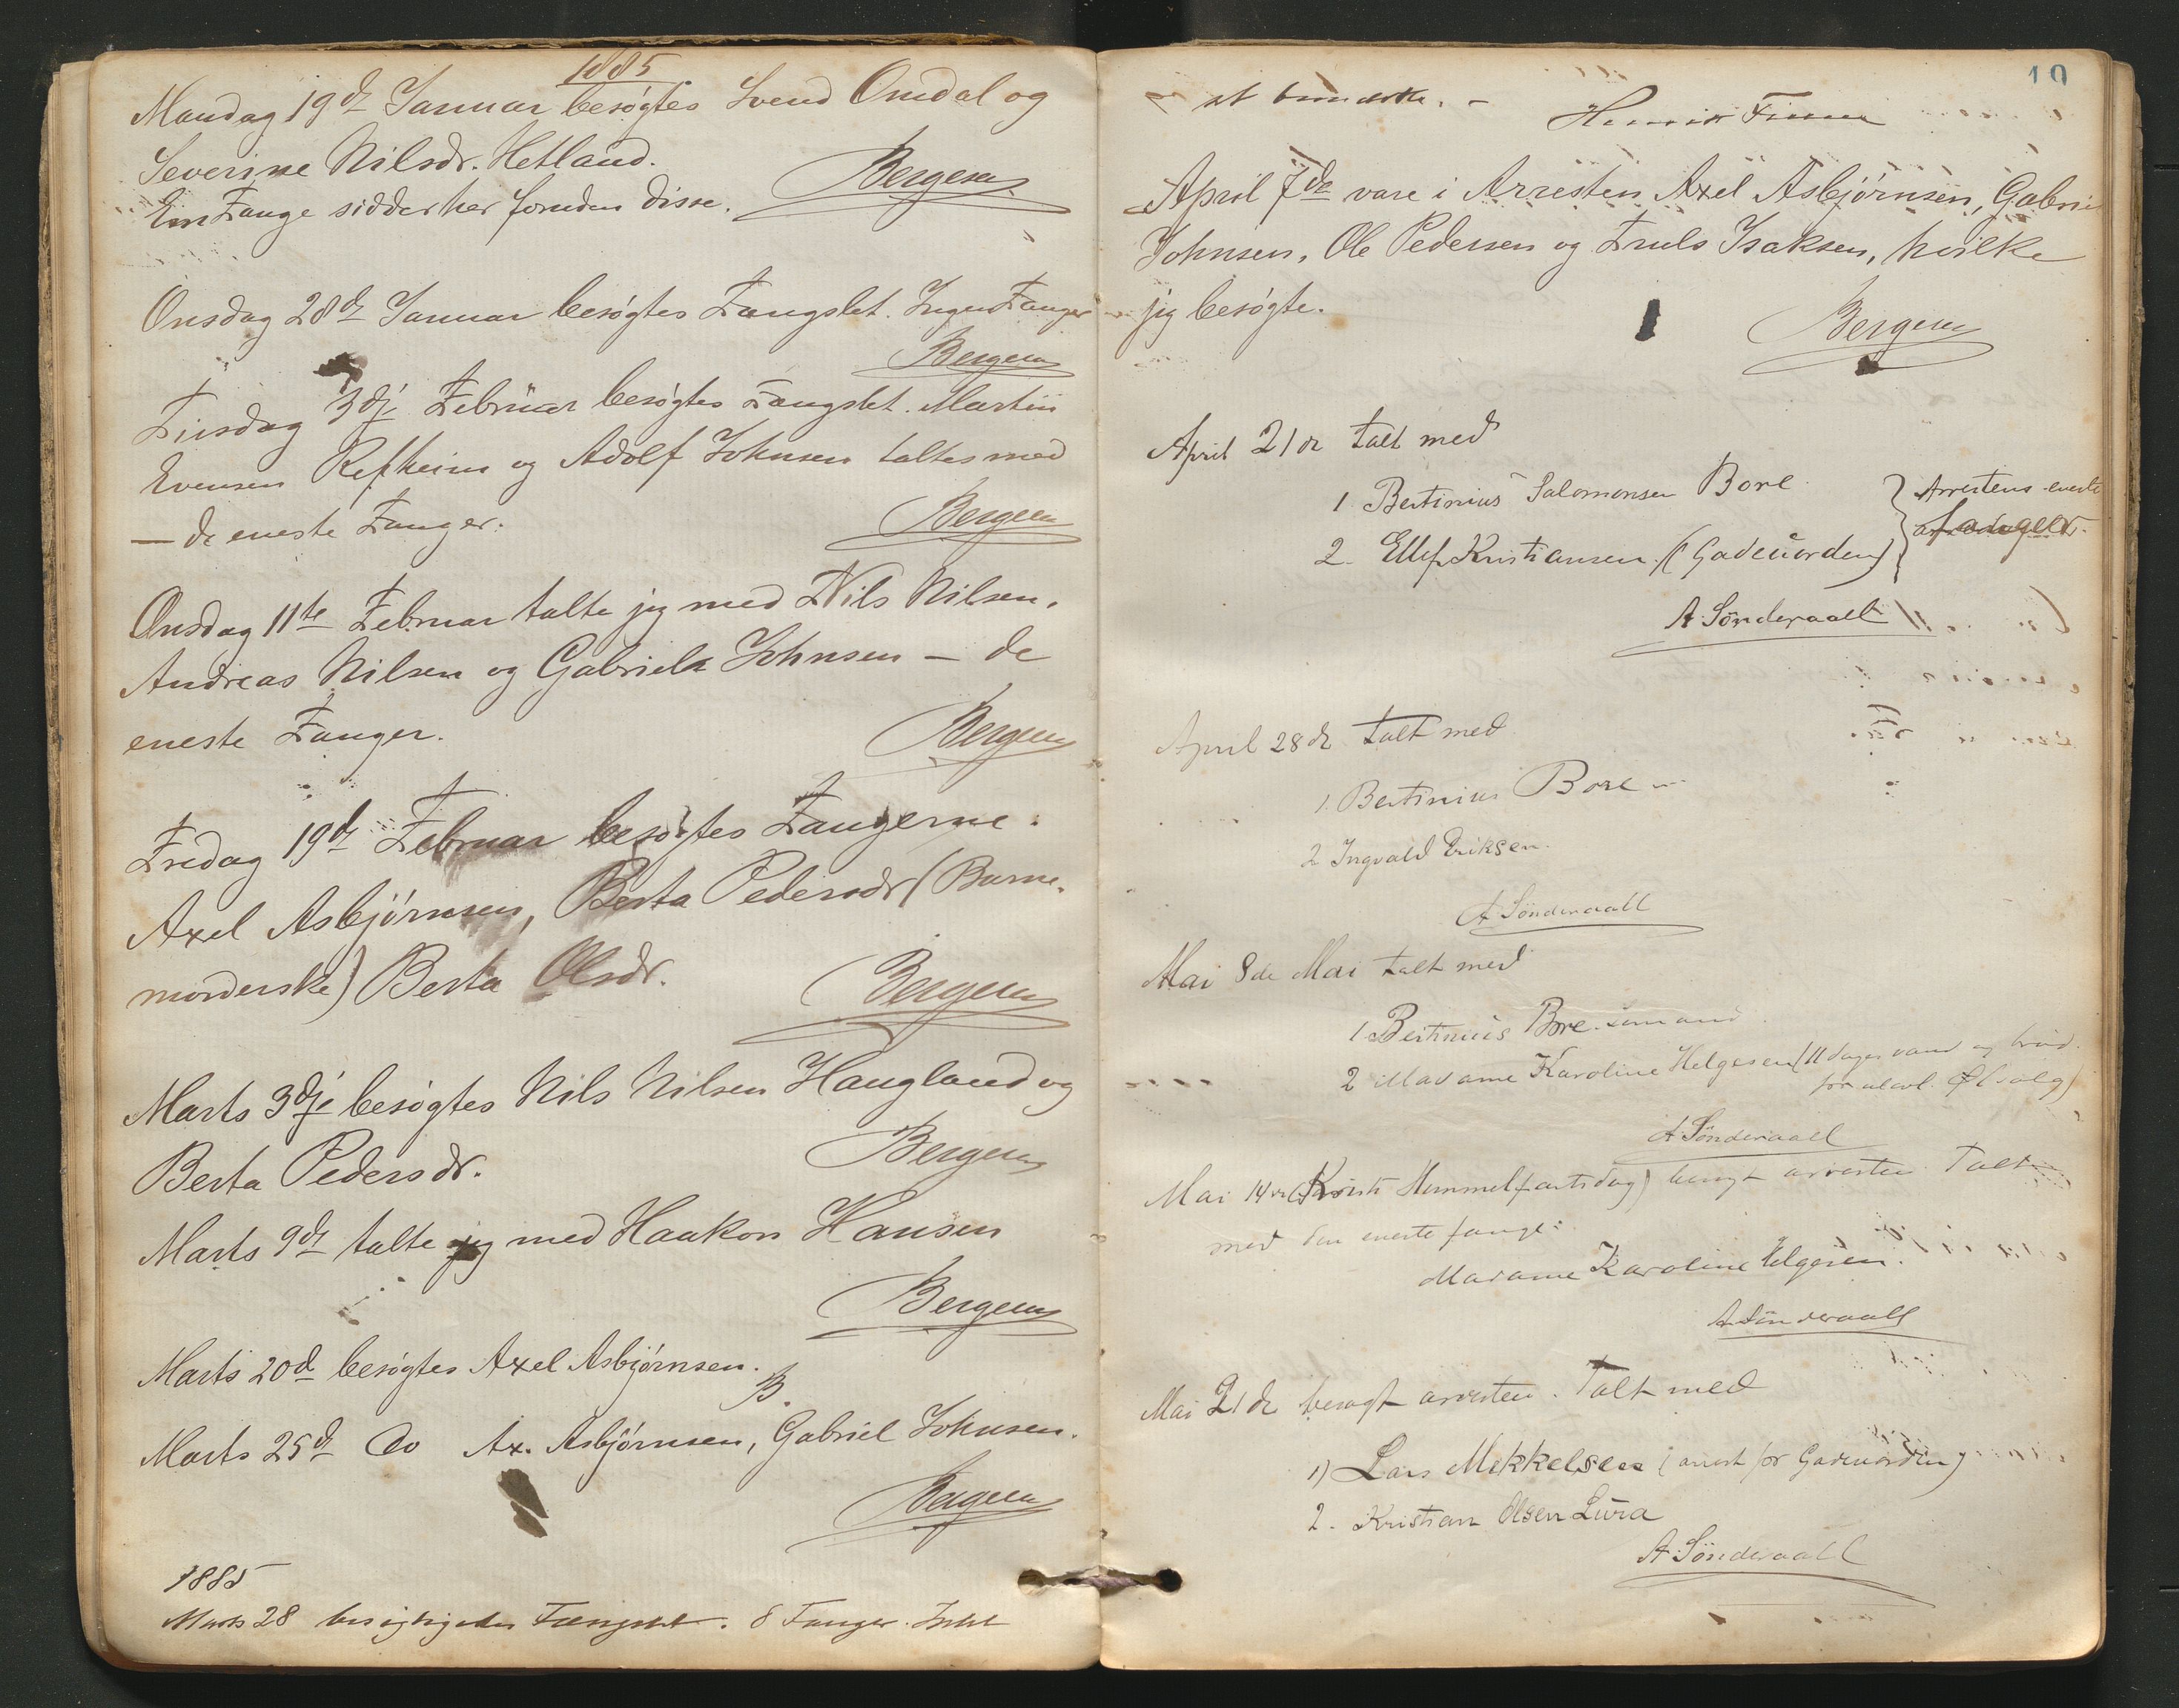 1885
Mandag 19d Januar besøgtes Svend Omdal og
Severine Nilsdr. Hetland.
En Fange sidder her foruden disse. Bergesen
Onsdag 28d Januar besøgtes Fængslet. Ingen Fanger
Bergesen
Tirsdag 3dj Februar besøgtes Fængslet. Martin
Evensen Refheim og Adolf Johnsen taltes med
— de eneste Fanger.
Bergesen
Onsdag 11te Februar talte jeg med Nils Nilsen,
Andreas Nilsen og Gabriel Johnsen — de
eneste Fanger.
Bergesen
Fredag 19d Februar besøgtes Fangerne:
Axel Asbjørnsen, Berta Pedersdr (Barne-
morderske) Berta Olsdr.
Bergesen
Marts 3dje besøgtes Nils Nilsen Haugland og
Berta Pedersdr.
Bergesen
Marts 9d talte jeg med Haakon Hansen
Bergesen
Marts 20d besøgtes Axel Asbjørnsen.
B.
Marts 25d Do Ax. Asbjørnsen, Gabriel Johnsen.
Bergesen
1885
Marts 28 besigtigedes Fængslet. 8 Fanger. Intet
10
at bemærke. –
April 7de vare i Arresten Axel Asbjørnsen, Gabriel
Johnsen, Ole Pedersen og Truls Isaksen, hvilke
jeg besøgte.
Bergesen
April 21de talt med
1 Bertinius Salomonsen Bore
Arrestens eneste
2. Ellef Kristiansen (Gadeuorden)
fanger.
A Sönderaall
April 28de talt med
1. Bertinius Bore
2 Ingvald Eriksen.
A Sönderaall
Mai 8de Mai talt med
1 Bertinius Bore
2 Madame Karoline Helgesen (11 dages vand og brød
for ulovl. Ølsalg)
A Sönderaall
Mai 14de (Kristi Himmelfartsdag) besøgt arresten. Talt
med den eneste fange:
Madame Karoline Helgesen.
A Sönderaall
Mai 21de besøgt arresten. Talt med
1) Lars Mikkelsen (arrest for Gadeuorden)
2. Kristian Olsen Lura
A Sönderaall